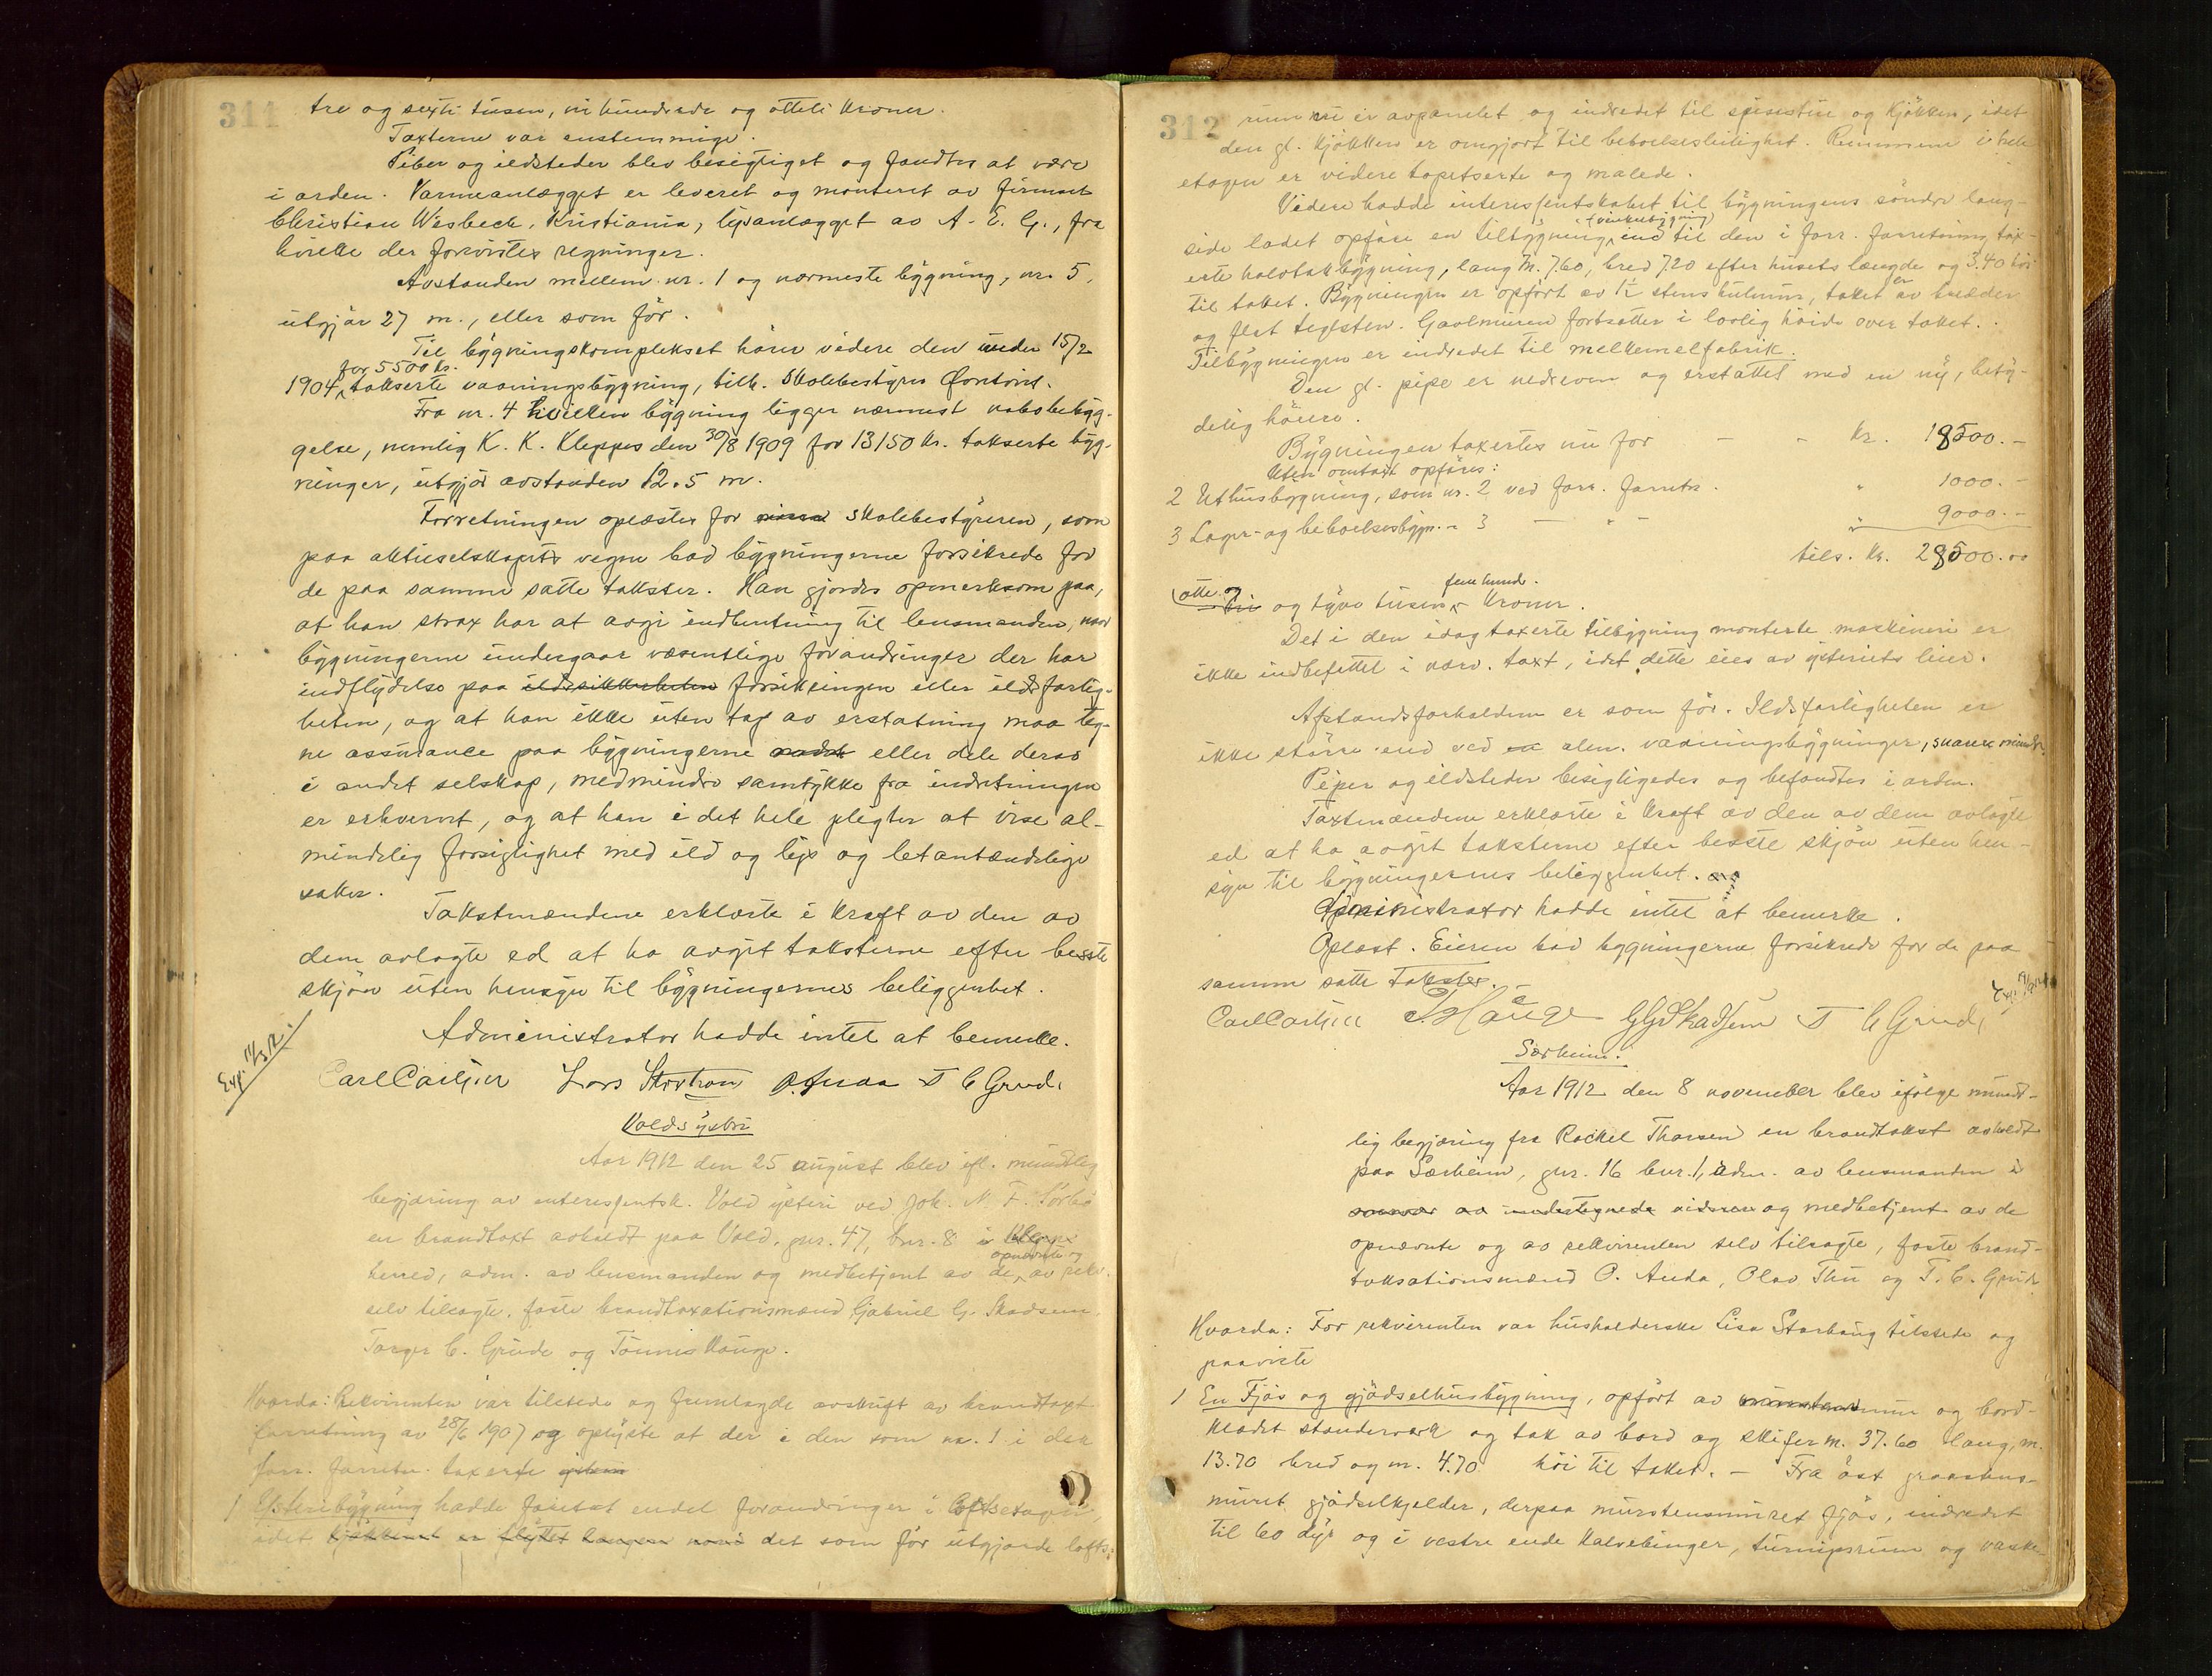 311
tre og sexti tusen, ni hundrede og otteti kroner.
Taxterne var enstemmige.
Piber og ildsteder blev besigtiget og fandtes at være
i orden. Varmeanlægget er leveret og monteret av firmaet
Christian Wisbech, Kristiania, lysanlægget av A. E. G., fra
hvilke der forevistes regninger.
Avstanden mellem nr. 1 og nærmeste bygning, nr. 5,
utgjør 27 m., eller som før.
Til bygningskomplekset hører videre den under 15/2
for 5500 kr.
1904, takserte vaaningsbygning, tilh. Skolebestyrer
Fra nr. 4 hvilken bygning ligger nærmest nabobebyg-
gelse, nemlig K. K. Kleppes den 30/8 1909 for 13150 kr. takserte byg-
ninger, utgjør avstanden 12.5 m.
Forretningen oplæstes for skolebestyreren, som
paa aktieselskapets vegne bad bygningerne forsikrede for
de paa samme satte takster. Han gjordes opmerksom paa,
at han strax har at avgi indberetning til lensmanden, naar
bygningerne undergaar væsentlige forandringer der har
indflydelse paa ildssikkerheten forsikringen eller ildsfarlig-
heten, og at han ikke uten tap av erstatning maa teg-
ne assurance paa bygningerne eller dele deras
i andet selskap, medmindre samtykke fra indretningen
er erhvervet, og at han i det hele plegter at vise al-
mindelig forsigtighet med ild og lys og letantændelige
saker.
Takstmændene erklærte i kraft av den av
dem avlagte ed at ha avgit taksterne efter beste
skjøn uten hensyn til bygningernes beliggenhet.
Administrator hadde intet at bemerke.
Exp. 11/3 12.
Carl Carlsen Lars Storhaug O. Anda T C Grude
Volds ysteri
Aar 1912 den 25 august blev ifl. mundtlig
begjæring av interessentsk. Vold ysteri ved Joh. N. F. Sørbø
en brandtaxt avholdt paa Vold, gnr. 47, bnr. 8 i Klepp
opnævnte og
herred, adm. av lensmanden og medbetjent av de, av rekv.
selv tilsagte, faste brandtaxationsmænd Gabriel G. Skadsem,
Torger C. Grude og Tønnes Hauge.
Hvorda: Rekvirenten var tilstede og fremlagde avskrift av brandtaxt-
forretning av 28/6 1907 og oplyste at der i den som nr. 1 i den
forr. forretn. taxerte
1 Ysteribygning hadde foretat endel forandringer i loftsetagen,
idet kjøkkenet er flyttet det som før utgjorde lofts-
312
rum nu er avpanelet og indredet til spisestue og kjøkken, idet
den gl. kjøkken er omgjort til beboelsesleilighet. Rummene i hele
etagen er videre tapetserte og malede.
Videre hadde interessentskabet til bygningens søndre lang-
(vinkelbygning)
side ladet opføre en tilbygning, ind til den i forr. forretning tax-
erte halvtakbygning, lang m. 7.60, bred 7.20 efter husets længde og 3.40 høi
til taket. Bygningen er opført av 1½ stens hulmur, taket er av bræder
og flat teglsten. Gavlmuren fortsætter i lovlig høide over taket.
Tilbygningen er indredet til melkemelfabrik.
Den gl. pipe er nedreven og erstattet med en ny, bety-
delig høiere.
Bygningen taxertes nu for - - kr. 18500.-
Uten omtaxt opføres:
2 Uthusbygning, som nr. 2 ved forr. forretn. " 1000.-
3 Lager- og beboelsesbygn. - 3 - " - " 9000.-
tils. kr. 28500.00
(otte og fem hund.
tri og tyve tusen, kroner.
Det i den idag taxerte tilbygning monterte maskineri er
ikke indbefattet i nærv. taxt, idet dette eies av ysteriets leier.
Afstandsforholdene er som før. Ildsfarligheten er
ikke større end ved alm. vaaningsbygninger, snarere mindre.
Peper og ildsteder besigtigedes og befandtes i orden.
Taxtmændene erklærte i kraft av den av dem avlagte
ed at ha avgit taksterne efter beste skjøn uten hen-
syn til bygningernes beliggenhet.
Administrator hadde intet at bemerke.
Oplæst. Eieren bad bygningerne forsikrede for de paa
samme satte takster.
Carl Carlsen T Hauge G G Skadsem T C Grude
Særheim.
Aar 1912 den 8 november blev ifølge mundt-
lig begjæring fra Rachel Thorsen en brandtakst avholdt
paa Særheim, gnr. 16 bnr. 1, adm. av lensmanden i
og medbetjent av de
opnævnte og av rekvirenten selv tilsagte, faste brand-
taksationsmænd O. Anda, Olav Thu og T. C. Grude
Hvorda: For rekvirenten var husholderske Lisa Storhaug tilstede og
paaviste
1 En Fjøs og gjødselhusbygning, opført av mur og bord-
klædt standerverk og tak av bord og skifer m. 37.60 lang, m.
13.70 bred og m. 4.70 høi til taket. - Fra øst graastens-
muret gjødselkjelder, derpaa murstensmuret fjøs, indredet
til 60 dyr og i vestre ende kalvebinger, turnipsrum og vaske-